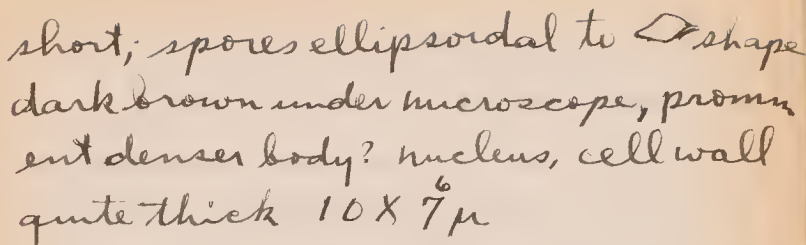 short; spores ellipsoidal to shape
dark brown under microscope, promin
ent denser body? nucleus, cell wall
quite thick 10 X 7 6 µ